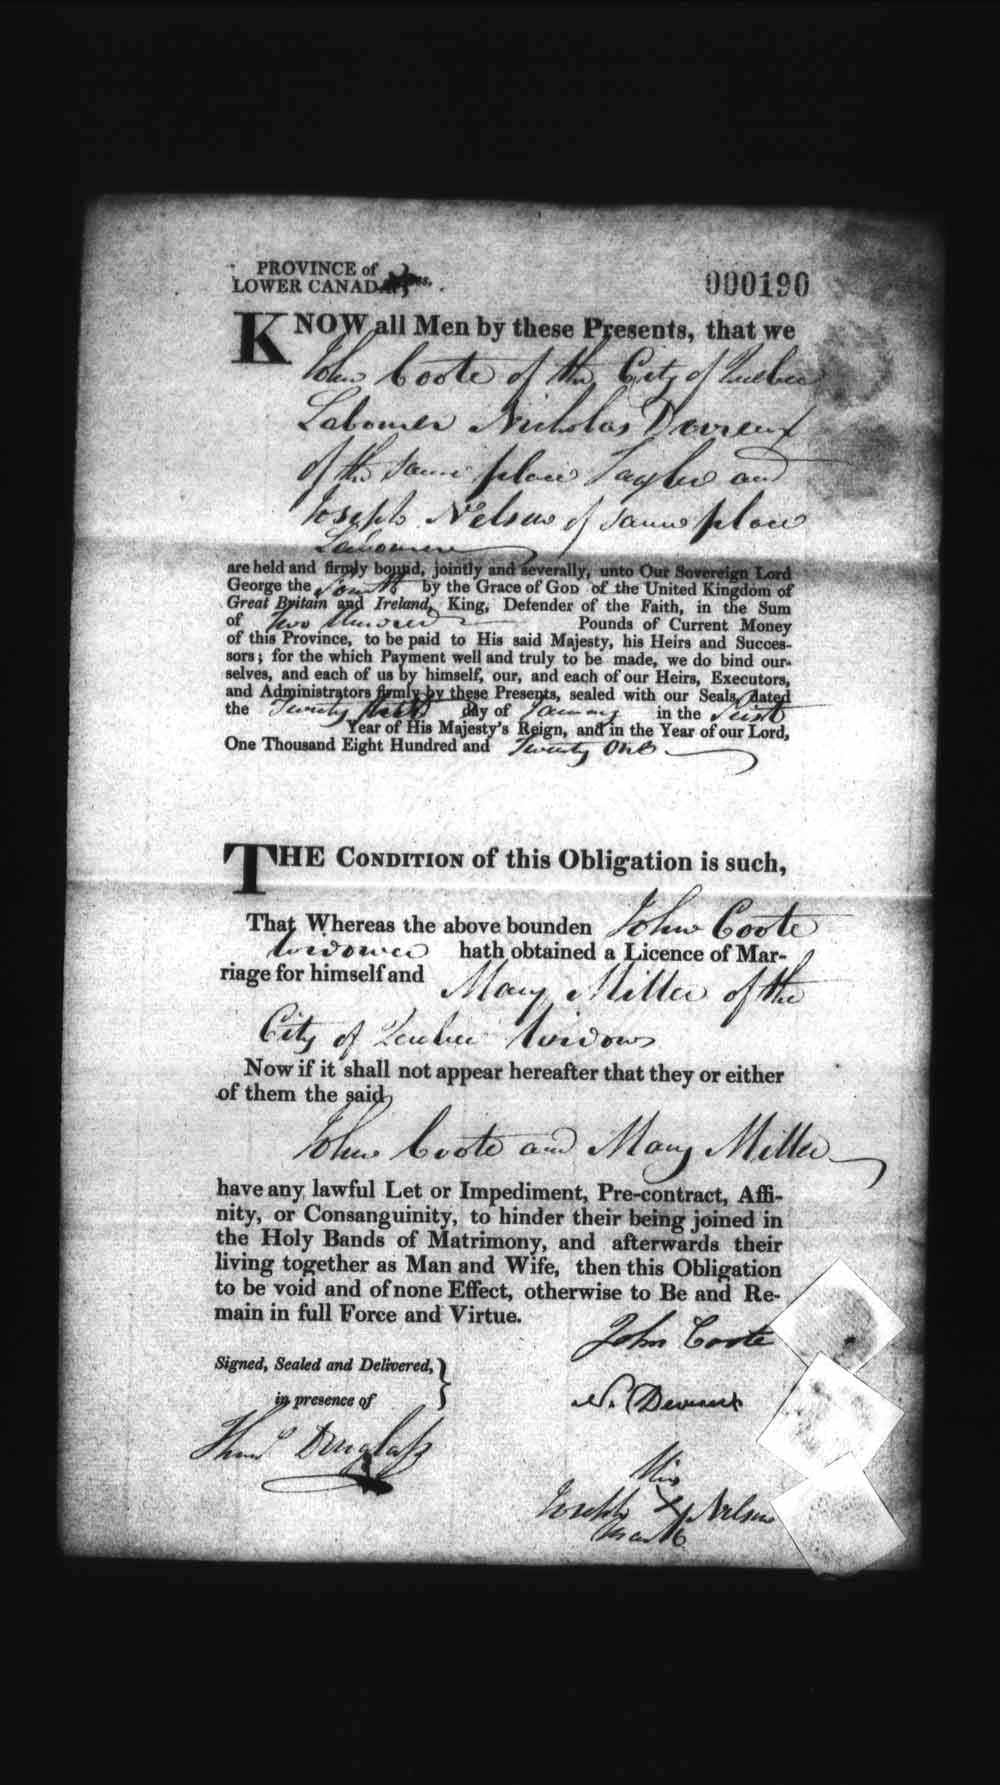 PROVINCE of
LOWER CANADA
000190
KNOW all Men by these Presents, that we
John Coote of the City of Quebec
Labourer Nicholas Devreux
of the same place Taylor and
Joseph Nelson of same place
Labourer
are held and firmly bound, jointly and severally, unto Our Sovereign Lord
George the Fourth by the Grace of God of the United Kingdom of
Great Britain and Ireland, King, Defender of the Faith, in the Sum
of Two Hundred Pounds of Current Money
of this Province, to be paid to His said Majesty, his Heirs and Succes-
sors; for the which Payment well and truly to be made, we do bind our-
selves, and each of us by himself, our, and each of our Heirs, Executors,
and Administrators firmly by these Presents, sealed with our Seals, dated
the Twenty day of January in the First
Year of His Majesty's Reign, and in the Year of our Lord,
One Thousand Eight Hundred and Twenty One
THE CONDITION of this Obligation is such,
That Whereas the above bounden John Coote
widower hath obtained a Licence of Mar-
riage for himself and Mary Miller of the
City of Quebec widow
Now if it shall not appear hereafter that they or either
of them the said
John Coote and Mary Miller
have any lawful Let or Impediment, Pre-contract, Affi-
nity, or Consanguinity, to hinder their being joined in
the Holy Bands of Matrimony, and afterwards their
living together as Man and Wife, then this Obligation
to be void and of none Effect, otherwise to Be and Re-
main in full Force and Virtue.
John Coote
Signed, Sealed and Delivered,
in presence of
N. Devreux
Thos Douglass
His
Joseph X Nelson
mark